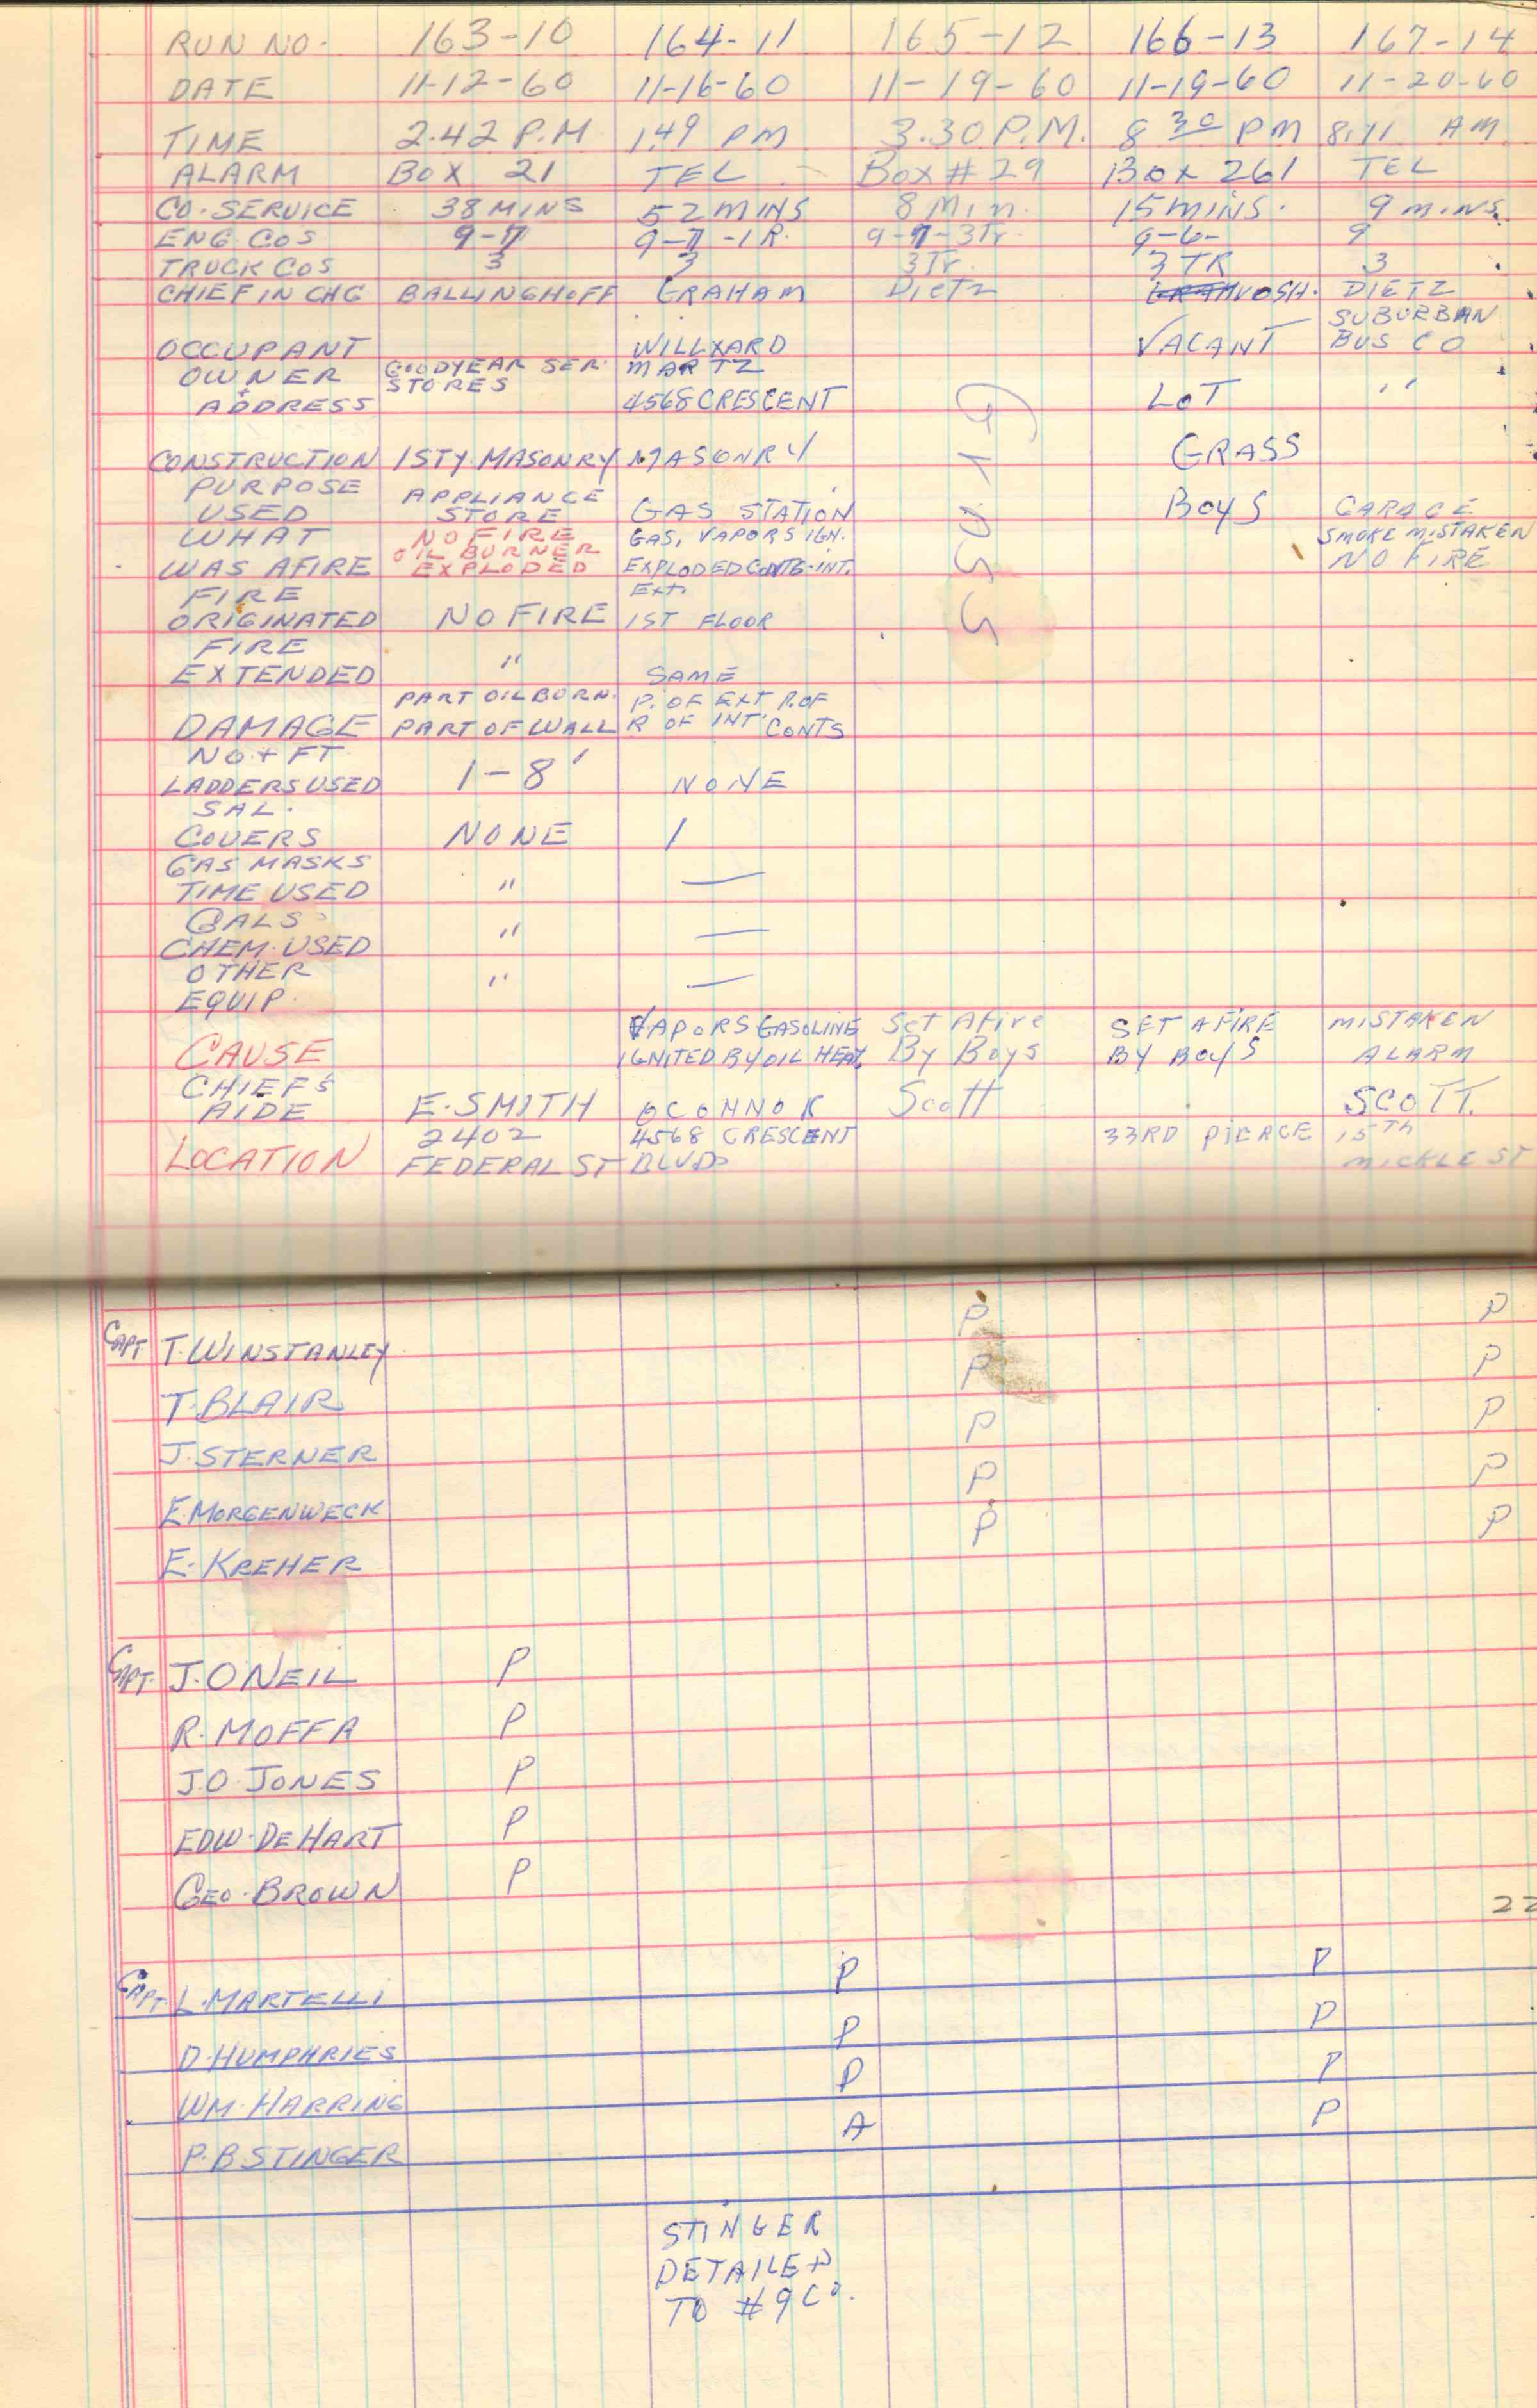 RUN NO. 163-10 164-11 165-12 166-13 167-14
DATE 11-12-60 11-16-60 11-19-60 11-19-60 11-20-60
TIME 2.42 P.M 1.49 PM 3.30 P.M. 8 30 PM 8.11 AM
ALARM BOX 21 TEL - Box # 29 Box 261 TEL
CO. SERVICE 38 MINS 52 MINS 8 Min. 15 mins. 9 MINS.
ENG COS 9-7 9-7-1R. 9-7-3Tr. 9-6- 9
TRUCK COS 3 3 3Tr. 3 TR 3
CHIEF IN CHG BALLINGHOFF GRAHAM Dietz VOSH. DIETZ
SUBURBAN
OCCUPANT WILLXARD VACANT BUS CO
OWNER GOODYEAR SER. MARTZ
+ STORES
ADDRESS 4568 CRESCENT LOT "
GRASS
CONSTRUCTION 1STY. MASONRY MASONRY GRASS
PURPOSE APPLIANCE
USED STORE GAS STATION BOYS GARAGE
WHAT NO FIRE GAS, VAPORS IGN. SMOKE MISTAKEN
OIL BURNER
WAS AFIRE EXPLODED EXPLODED CONTS-INT. NO FIRE
FIRE EXT.
ORIGINATED NO FIRE 1ST FLOOR
FIRE
EXTENDED " SAME
PART OIL BURN. P. OF EXT P. OF
DAMAGE PART OF WALL R OF INT. CONTS
NO. + FT
LADDERS USED 1-8' NONE
SAL.
COVERS NONE 1
GAS MASKS
TIME USED " —
GALS
CHEM. USED " —
OTHER
EQUIP. " —
VAPORS GASOLINE Set Afire SET AFIRE MISTAKEN
CAUSE IGNITED BY OIL HEAT. By Boys BY BOYS ALARM
CHIEFS
AIDE E. SMITH OCONNOR Scott SCOTT.
2402 4568 CRESCENT 33RD PIERCE 15TH
LOCATION FEDERAL ST BLVD MICKLE ST
CAPT T. WINSTANLEY P P
T. BLAIR P P
J. STERNER P P
E. MORGENWECK P P
E. KREHER P P
CAPT. J. ONEIL P
R. MOFFA P
J.O. JONES P
EDW. DEHART P
GEO. BROWN P
22
CAPT. L. MARTELLI P P
D. HUMPHRIES P P
WM. HARRING P P
P.B. STINGER A P
STINGER
DETAILED
TO #9 CO.